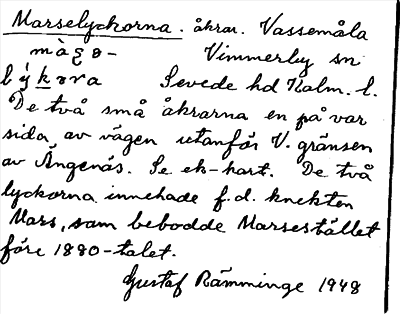 Marselyckorna. åkrar. Vassemåla
Vimmerby sn
Sevede hd Kalm. l.
De två små åkrarna en på var
sida av vägen utanför V. gränsen
av Ängenäs. Se ek-kart. De två
lyckorna innehade f.d. knekten
Mars, som bebodde Marsestället
före 1880-talet.
Gustaf Rämminge 1948